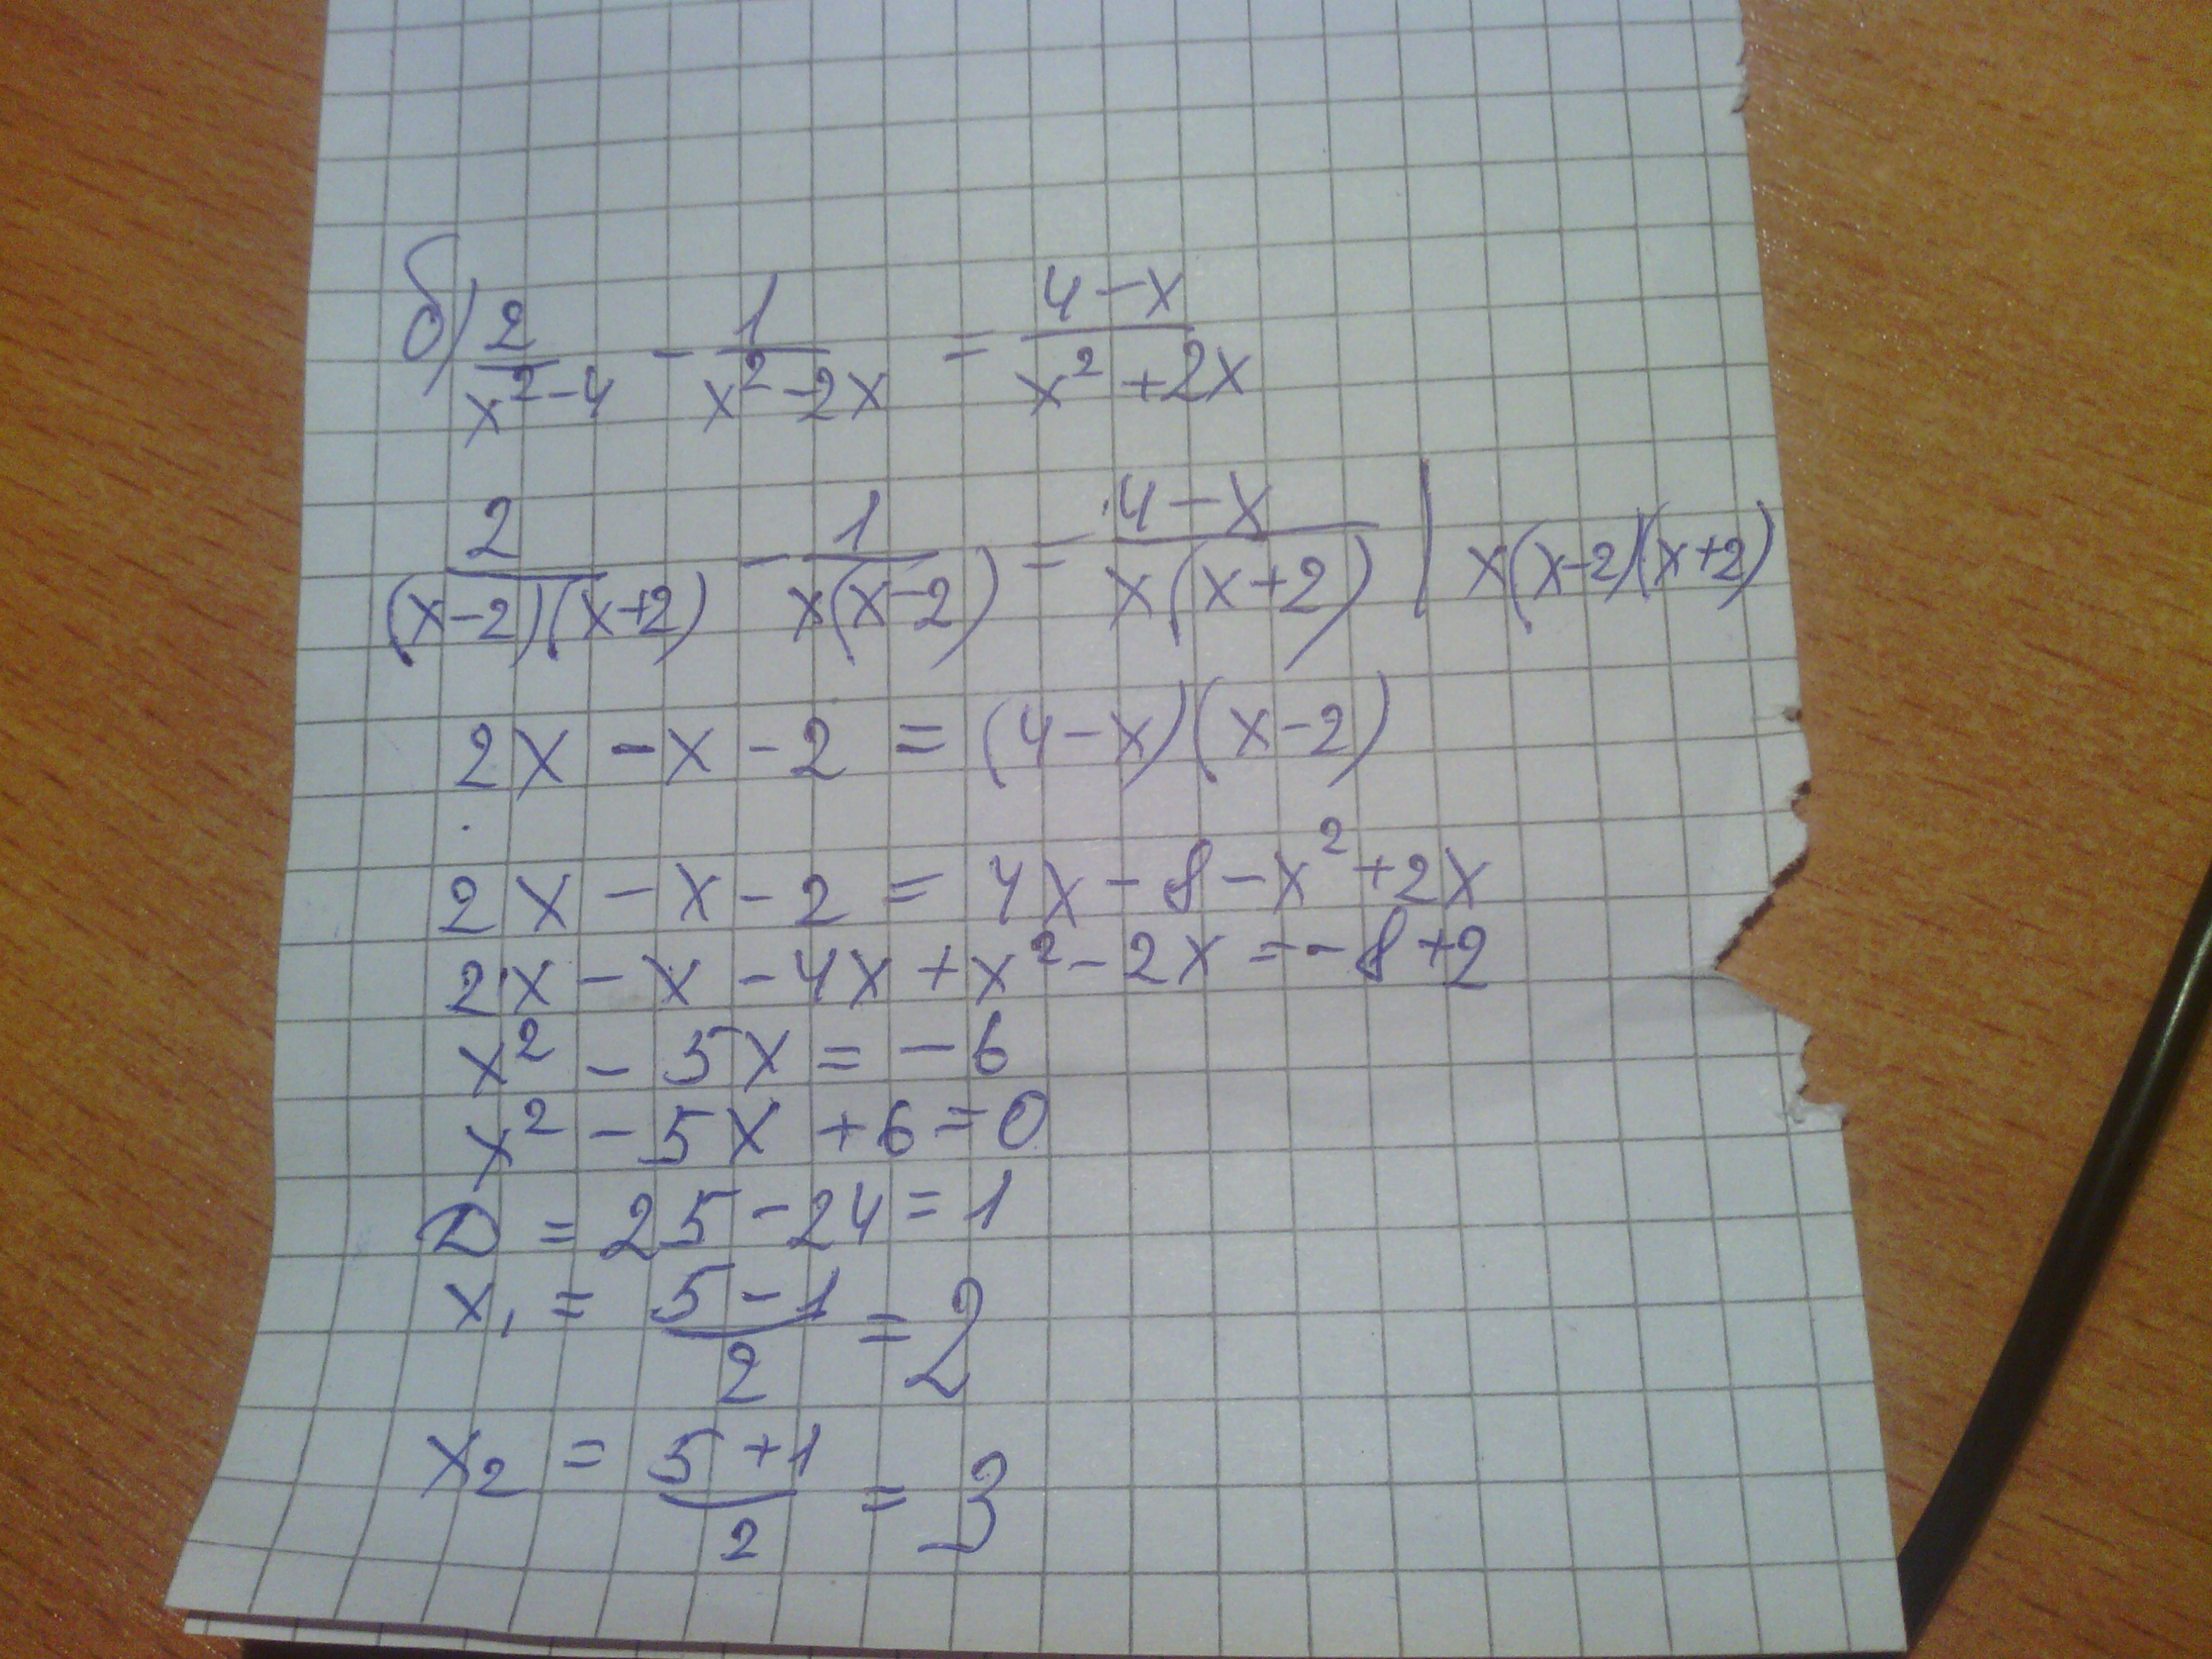 б) 2/(x²-4) - 1/(x²-2x) = (4-x)/(x²+2x)
2/((x-2)(x+2)) - 1/(x(x-2)) = (4-x)/(x(x+2)) | x(x-2)(x+2)
2x - x - 2 = (4-x)(x-2)
2x - x - 2 = 4x - 8 - x² + 2x
2x - x - 4x + x² - 2x = -8 + 2
x² - 5x = -6
x² - 5x + 6 = 0
D = 25 - 24 = 1
x₁ = (5-1)/2 = 2
x₂ = (5+1)/2 = 3